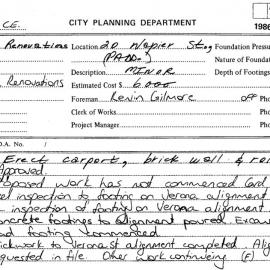 CE. CITY PLANNING DEPARTMENT 1986
Renovations Location 20 Napier St., Foundation Pressu
(PADD.) Nature of Foundat
Description MINOR Depth of Footings
Renovations Estimated Cost $ 6,000
Foreman Kevin Gilmore off Pho
Clerk of Works Phone
Project Manager Phone
D.A. No. /
Erect carport, brick wall &
Approved.
oposed work has not commenced Card
inspection to footing on Verona alignment
inspection of footing on Verona alignment
oncrete footings to alignment poured. Excav
footing commenced.
ickwork to Verona St alignment completed. Alig
quested in file. Other work continueing (F)